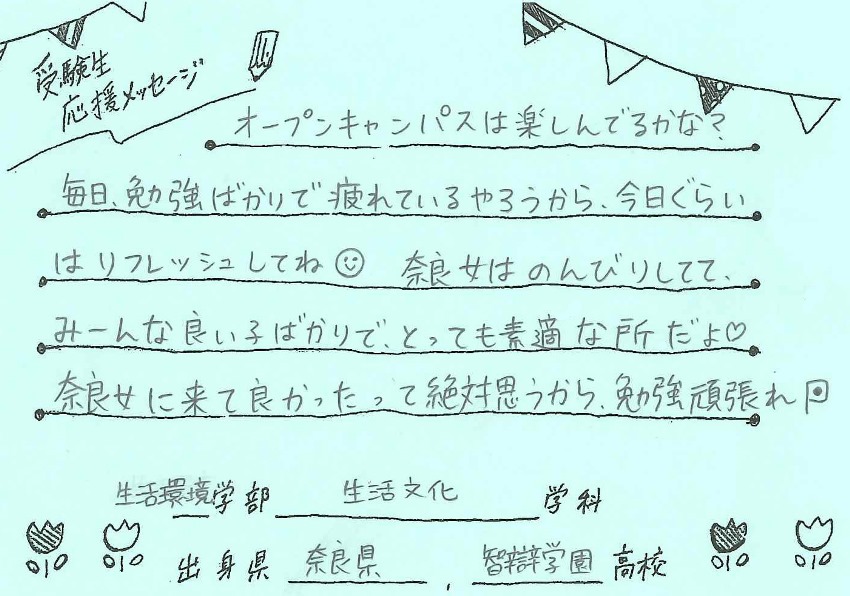 受験生
応援メッセージ
オープンキャンパスは楽しんでるかな？
毎日、勉強ばかりで疲れているやろうから、今日ぐらい
はリフレッシュしてね☺ 奈良女はのんびりしてて、
みーんな良い子ばかりで、とっても素適な所だよ♡
奈良女に来て良かったって絶対思うから、勉強頑張れ
生活環境学部 生活文化 学科
出身県 奈良県 , 智辯学園 高校